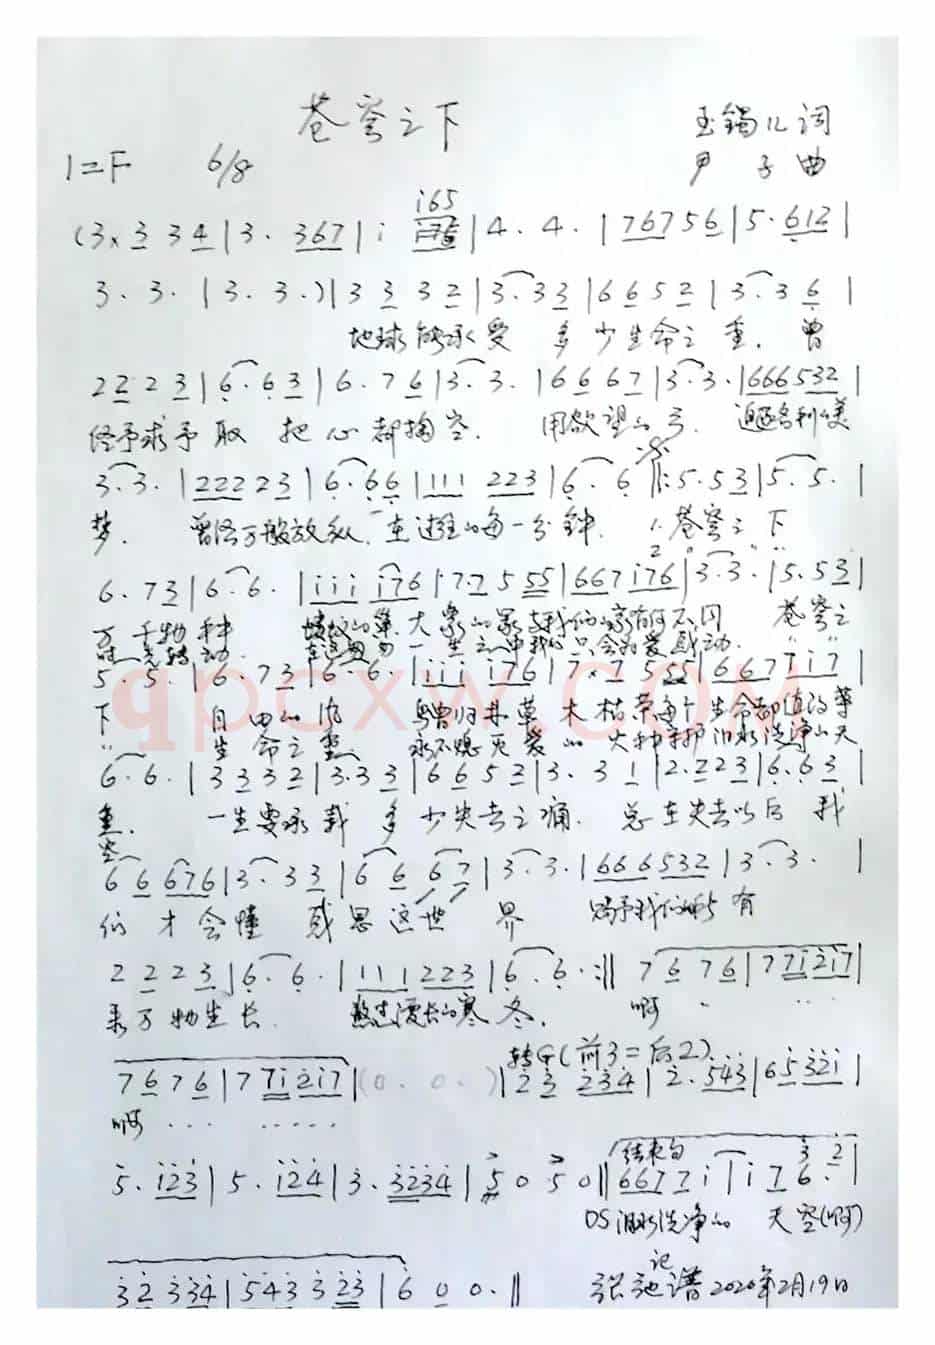 苍穹之下
玉镯儿词
1=F 6/8
尹子曲
i65
(3× 3 3 4 | 3 · 367 | i | 4 · 4 · | 76756 | 5 · 612 |
3 · 3 · | 3 · 3 ·) | 3 3 3 2 | 3 · 3 3 | 6 6 5 2 | 3 · 3 6 |
地球能承受 多少生命之重. 曾
2 2 2 3 | 6 · 6 3 | 6 · 7 6 | 3 · 3 · | 6 6 6 7 | 3 · 3 · | 666532 |
经予求予取 把心都掏空. 用欲望的弓. 追逐名利的美
3 · 3 · | 22223 | 6 · 66 | 111 223 | 6 · 6 ‖: 5 · 53 | 5 · 5 · |
梦. 曾经万般放纵. 在过往的每一分钟. 1. 苍穹之下
2
6 · 73 | 6 · 6 · | iii i76 | 7·7 5 55 | 667i76 | 3 · 3 · | 5 · 53 |
万千物种 大家的家与我们的家有何不同 苍穹之
时光转动. 一生之中我们只会为爱感动.
5 · 5 · | 6 · 73 | 6 · 6 · | iii i76 | 7×7 5 55 | 667 7i7 |
qpcxw.com
下 自由的风 与曾归井草木枯荣每个生命都值得尊
生命之重 永不熄灭爱的火种 泪水洗净的天
6 · 6 · | 3 3 3 2 | 3 · 3 3 | 6 6 5 2 | 3 · 3 1 | 2 · 223 | 6 · 63 |
重. 一生要承载 多少失去之痛. 总在失去以后 我
空
6 6 676 | 3 · 3 3 | 6 6 6 7 | 3 · 3 · | 666532 | 3 · 3 · |
们才会懂 感恩这世界 赐予我们所有
2 2 2 3 | 6 · 6 · | 111 223 | 6 · 6 · :‖ 76 76 | 77i2i7 |
来万物生长. 熬过漫长的寒冬. 啊
转G(前3=后2)
76 76 | 77i2i7 | (0 · 0 ·) | 23 234 | 2 · 543 | 65321 |
啊 ... .....
5 · 123 | 5 · 124 | 3 · 3234 | 5 0 5 0 ‖
结束句
3 2
6677i | i76 · |
DS泪水洗净的 天空(啊)
32 334 | 543 323 | 6 0 0 · ‖
记
张池谱 2020年2月19日